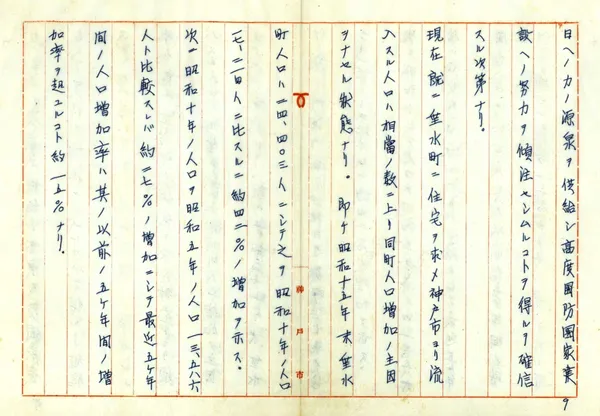 日ヘノ力ノ源泉ヲ供給シ高度国防国家建
設ヘノ努力ヲ傾注センムルコトヲ得ルヲ確信
スル次第ナリ。
現在既ニ垂水町ニ住宅ヲ求メ神戸市ヨリ流
入スル人口ハ相當ノ数ニ上リ同町人口増加ノ主因
ヲナセル状態ナリ。即チ昭和十五年末垂水
町人口ハ二四、四〇三人ニシテ之ヲ昭和十年ノ人口
一七、二一〇人ニ比スルニ約四二%ノ増加ヲ示ス。
次ニ昭和十年ノ人口ヲ昭和五年ノ人口一三、五八六
人ト比較スレバ約二七%ノ増加ニシテ最近五ケ年
間ノ人口増加率ハ其ノ以前ノ五ケ年間ノ増
加率ヲ超ユルコト約一五%ナリ。
神戸市
9